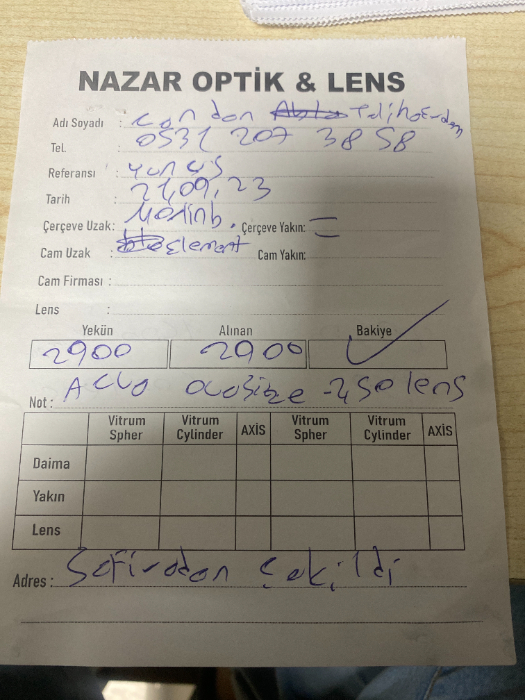 NAZAR OPTİK & LENS
Adı Soyadı : Candan
Tel. : 0531 207 3858
Referansı : Yunus
Tarih : 21,09,23
Çerçeve Uzak: Çerçeve Yakın: =
Cam Uzak : Element Cam Yakın:
Cam Firması :
Lens :
Yekün Alınan Bakiye
2900 2900 ✓
Not : Acuo -2,50 lens
Vitrum Spher Vitrum Cylinder AXİS Vitrum Spher Vitrum Cylinder AXİS
Daima
Yakın
Lens
Adres : Sofiradan Çekildi